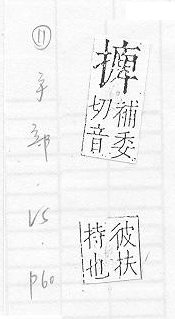 補委
切音
彼扶
持也
⑪手部.VS.P60